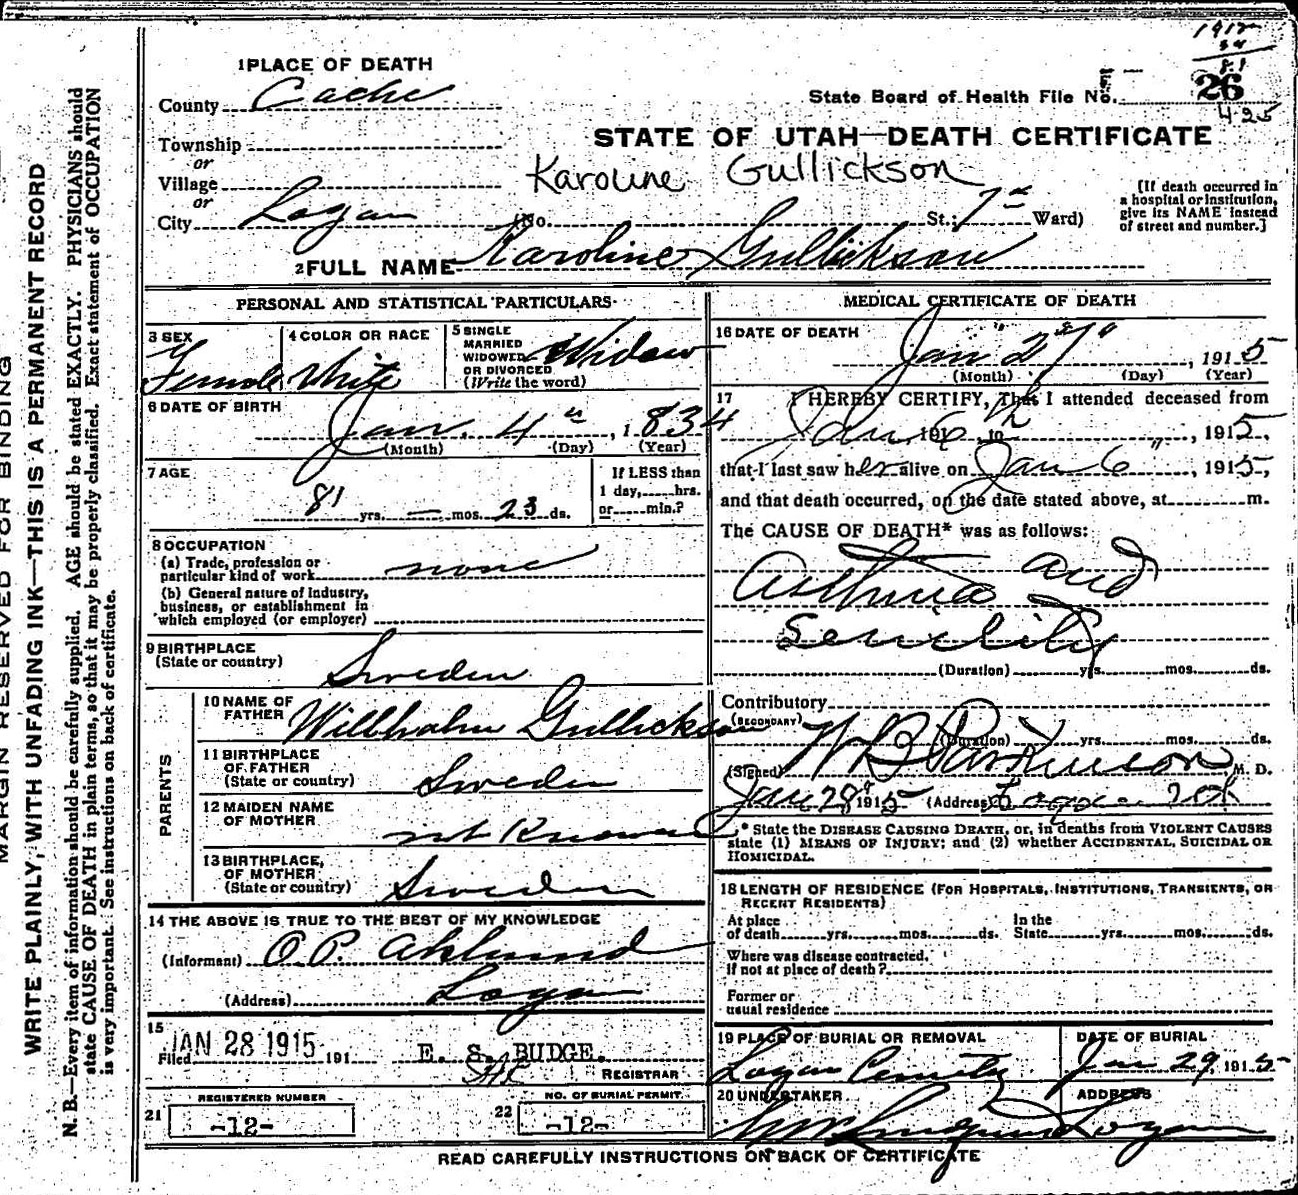 1912
34
81
1 PLACE OF DEATH
County Cache
State Board of Health File No. 26
425
Township
or
STATE OF UTAH—DEATH CERTIFICATE
Village
or
Karoline Gullickson
City Logan (No. St.; 7th Ward)
[If death occurred in a hospital or institution, give its NAME instead of street and number.]
2 FULL NAME Karoline Gullickson
PERSONAL AND STATISTICAL PARTICULARS
3 SEX Female
4 COLOR OR RACE White
5 SINGLE MARRIED WIDOWED OR DIVORCED (Write the word) Widow
6 DATE OF BIRTH
Jan. 4th, 1834
(Month) (Day) (Year)
7 AGE
81 yrs. — mos. 23 ds.
If LESS than 1 day, hrs. or min.?
8 OCCUPATION
(a) Trade, profession or particular kind of work none
(b) General nature of Industry, business, or establishment in which employed (or employer)
9 BIRTHPLACE
(State or country) Sweden
PARENTS
10 NAME OF FATHER Willhalm Gullickson
11 BIRTHPLACE OF FATHER (State or country) Sweden
12 MAIDEN NAME OF MOTHER not Known
13 BIRTHPLACE OF MOTHER (State or country) Sweden
14 THE ABOVE IS TRUE TO THE BEST OF MY KNOWLEDGE
(Informant) O. P. Ahlund
(Address) Logan
15
Filed JAN 28 1915, 191 E. S. BUDGE.
REGISTRAR
21 REGISTERED NUMBER -12-
22 NO. OF BURIAL PERMIT -12-
MEDICAL CERTIFICATE OF DEATH
16 DATE OF DEATH
Jan 27th, 1915
(Month) (Day) (Year)
17 I HEREBY CERTIFY, That I attended deceased from
Jan 6th 191 , to , 1915,
that I last saw her alive on Jan 6, 1915,
and that death occurred, on the date stated above, at m.
The CAUSE OF DEATH* was as follows:
Asthma and
Senility
(Duration) yrs. mos. ds.
Contributory
(SECONDARY)
(Duration) yrs. mos. ds.
(Signed) W B Parkinson M. D.
Jan 28 1915 (Address) Logan Utah
* State the DISEASE CAUSING DEATH, or, in deaths from VIOLENT CAUSES
state (1) MEANS OF INJURY; and (2) whether ACCIDENTAL, SUICIDAL OR
HOMICIDAL.
18 LENGTH OF RESIDENCE (FOR HOSPITALS, INSTITUTIONS, TRANSIENTS, OR
RECENT RESIDENTS)
At place of death yrs. mos. ds. In the State yrs. mos. ds.
Where was disease contracted,
if not at place of death?
Former or
usual residence
19 PLACE OF BURIAL OR REMOVAL
Logan Cemetery
DATE OF BURIAL
Jan 29, 1915
20 UNDERTAKER
ADDRESS
Logan
READ CAREFULLY INSTRUCTIONS ON BACK OF CERTIFICATE
MARGIN RESERVED FOR BINDING
WRITE PLAINLY, WITH UNFADING INK—THIS IS A PERMANENT RECORD
N. B.—Every item of information should be carefully supplied. AGE should be stated EXACTLY. PHYSICIANS should
state CAUSE OF DEATH in plain terms, so that it may be properly classified. Exact statement of OCCUPATION
is very important. See instructions on back of certificate.